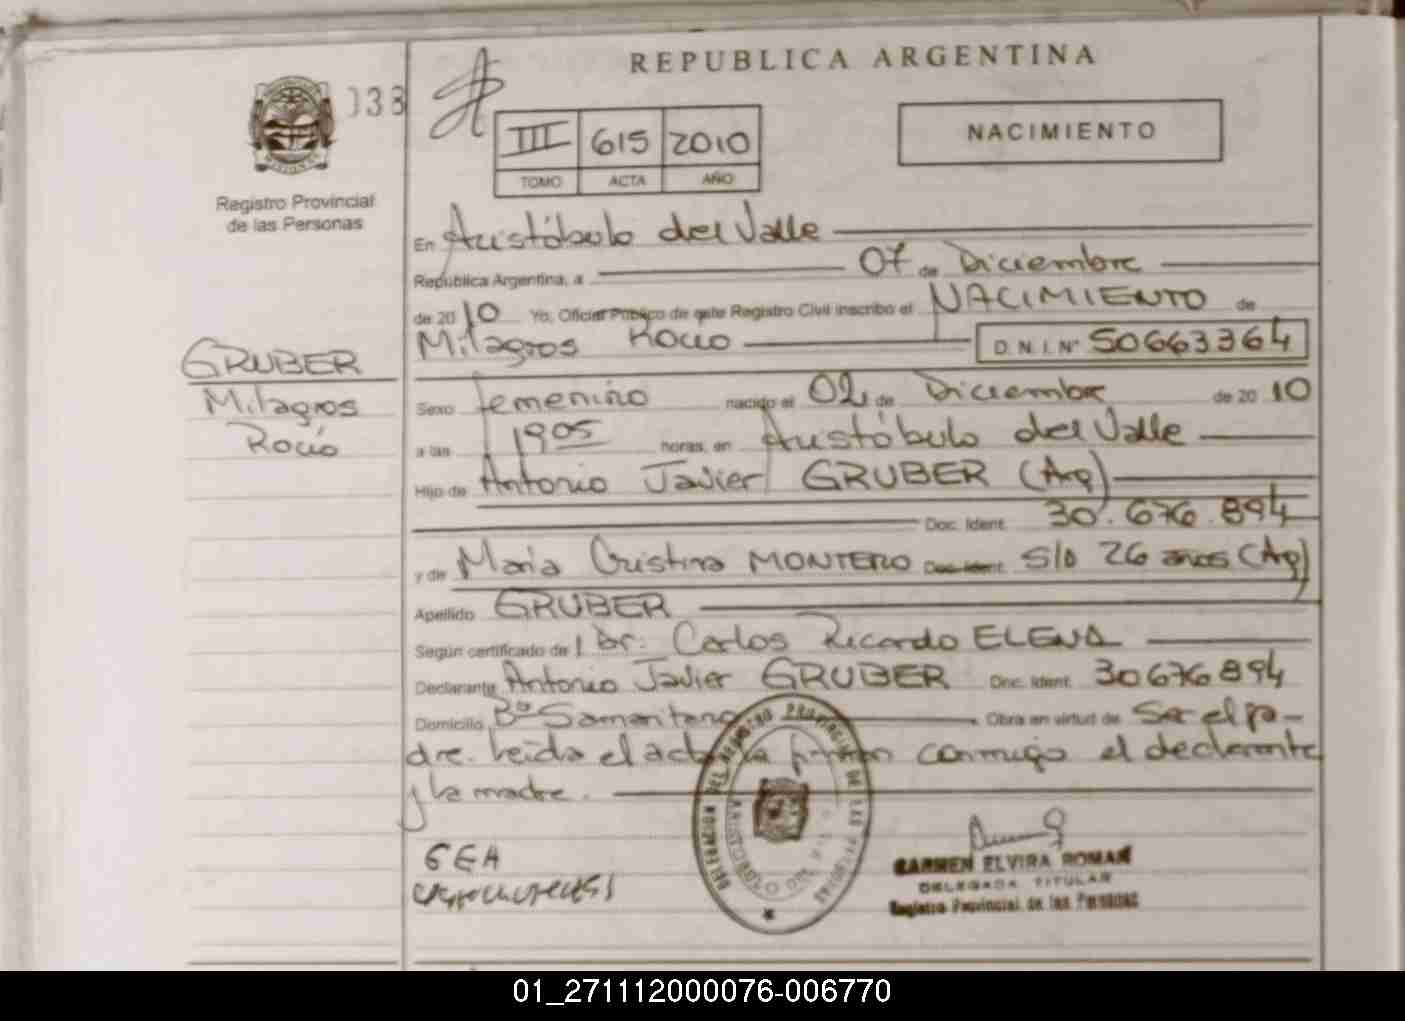 REPUBLICA ARGENTINA
038
III 615 2010
TOMO ACTA AÑO
NACIMIENTO
Registro Provincial
de las Personas
GRUBER
Milagros
Rocío
En Aristóbulo del Valle
República Argentina, a 07 de Diciembre
de 2010 Yo, Oficial Público de este Registro Civil inscribo el NACIMIENTO de
Milagros Rocío D.N.I.Nº 50663364
Sexo femenino nacido el 02 de Diciembre de 2010
a las 1905 horas, en Aristóbulo del Valle
Hijo de Antonio Javier GRUBER (Arg)
Doc. Ident. 30.676.894
y de María Cristina MONTERO Doc. Ident. S/D 26 años (Arg)
Apellido GRUBER
Según certificado de Dr. Carlos Ricardo ELENA
Declarante Antonio Javier GRUBER Doc. Ident. 30676894
Domicilio Bº Samaritano Obra en virtud de Ser el pa-
dre. Leída el acta la firman conmigo el declarante
y la madre.
GEA
CARMEN ELVIRA ROMAN
DELEGADA TITULAR
Registro Provincial de las Personas
DELEGACION DEL REGISTRO PROVINCIAL DE LAS PERSONAS
01_271112000076-006770